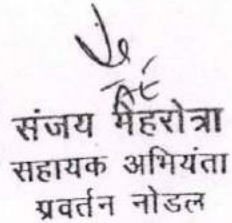 AE
संजय मेहरोत्रा
सहायक अभियंता
प्रवर्तन नोडल